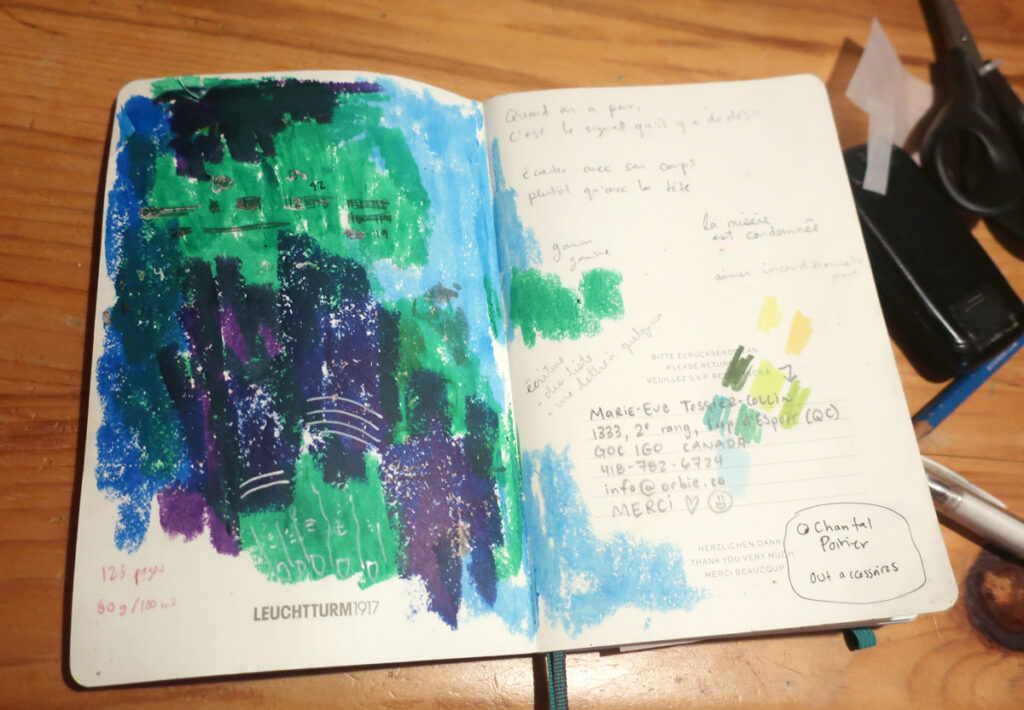 42
123 pages
80 g/100 m2
LEUCHTTURM1917
Quand on a peur,
c'est le signal qu'il y a du désir
écouter avec son corps
plutôt qu'avec la tête
la misère
est condamnée
aimer inconditionnelle
gamine
écriture
- des liste
- une lettre à quelqu'un
BITTE ZURÜCKSENDEN AN
PLEASE RETURN
VEUILLEZ S.V.P. RE À
MARIE-EVE TESSIER-COLLIN
1333, 2e rang, Cap d'Espoir (QC)
G0C 1G0 CANADA
418-782-6724
info@orbie.ca
MERCI ♡ ☺
HERZLICHEN DANK
THANK YOU VERY MUCH
MERCI BEAUCOUP
Chantal
Poirier
OUT accessoires